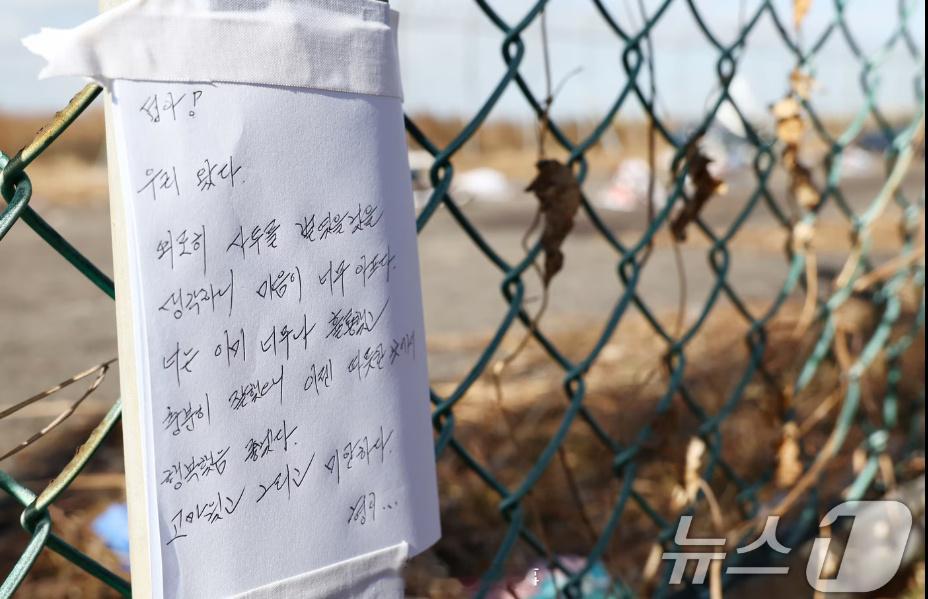 섭아!
우리 왔다.
외로히 사투를 벌였을 것을
생각하니 마음이 너무 아프다.
너는 이미 너무나 훌륭했고
충분히 잘했으니 이젠 따뜻한 곳에서
행복했음 좋겠다.
고마웠고 그리고 미안하다.
뉴스1